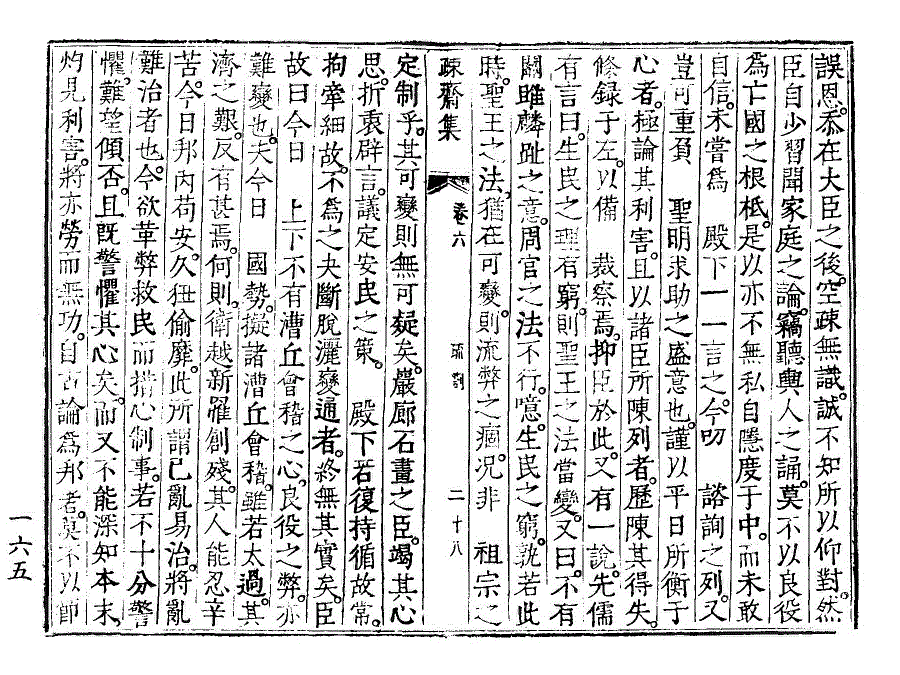 誤恩。忝在大臣之後。空疎無識。誠不知所以仰對。然
臣自少習聞家庭之論。竊聽輿人之誦。莫不以良役
爲亡國之根柢。是以亦不無私自隱度于中。而未敢
自信。未嘗爲 殿下一一言之。今叨 諮詢之列。又
豈可重負 聖明求助之盛意也。謹以平日所衡于
心者。極論其利害。且以諸臣所陳列者。歷陳其得失。
條錄于左。以備 裁察焉。抑臣於此。又有一說。先儒
有言曰。生民之理有窮。則聖王之法當變。又曰。不有
關雎麟趾之意。周官之法不行。噫。生民之窮。孰若此
時。聖王之法。猶在可變。則流弊之痼。况非 祖宗之
疎齋集 卷六 疏劄 二十八
定制乎。其可變則無可疑矣。嚴廊石畫之臣。竭其心
思。折衷群言。議定安民之策。 殿下若復持循故常。
拘牽細故。不爲之夬斷脫灑變通者。終無其實矣。臣
故曰今日 上下不有漕丘會稽之心。良役之弊。亦
難變也。夫今日 國勢。擬諸漕丘會稽。雖若太過。其
濟之艱。反有甚焉。何則。衛越新罹創殘。其人能忍辛
苦。今日邦內苟安。久狃偷靡。此所謂已亂易治。將亂
難治者也。今欲革弊救民而措心制事。若不十分警
懼。難望傾否。且旣警懼其心矣。而又不能深知本末。
灼見利害。將亦勞而無功。自古論爲邦者。莫不以節
一六五